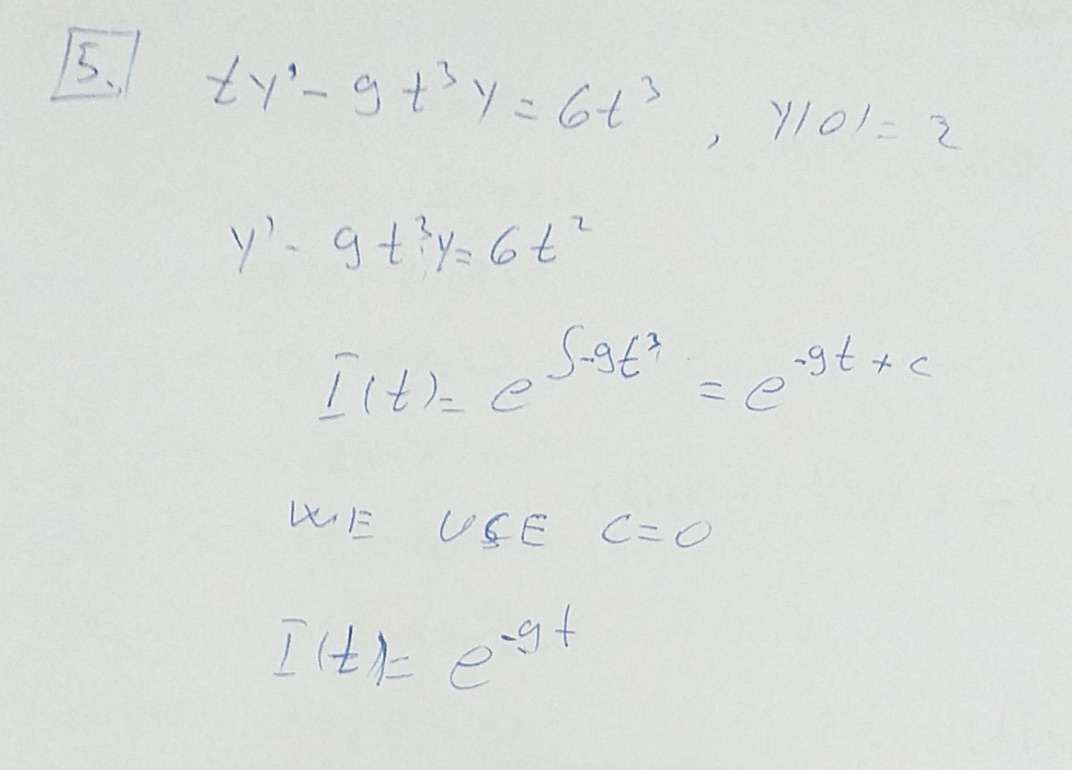 5. ty' - 9t³y = 6t³, y(0) = 2
y' - 9t³y = 6t²
I(t) = e^{∫-9t³} = e^{-9t + c}
WE USE C=0
I(t) = e^{-9t}